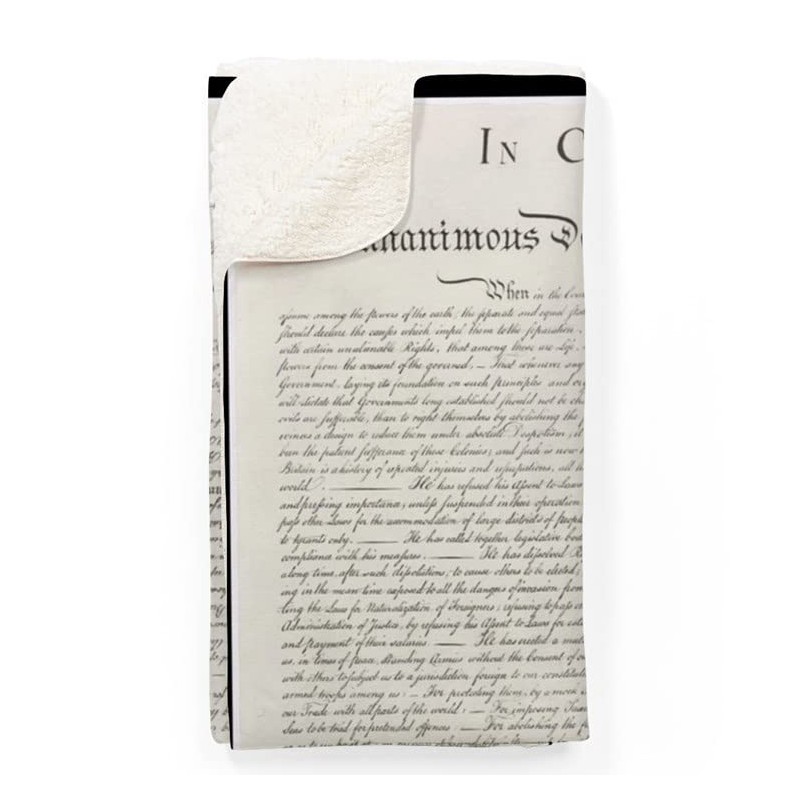 In C
unanimous De
When in the Cour
assume among the powers of the earth, the separate and equal stat
should declare the causes which impel them to the separation.
with certain unalienable Rights, that among these are Life, 
powers from the consent of the governed, — That whenever any
Government, laying its foundation on such principles and or
will dictate that Governments long established should not be cha
evils are sufferable, than to right themselves by abolishing the f
evinces a design to reduce them under absolute Despotism, it
been the patient sufferance of these Colonies; and such is now
Britain is a history of repeated injuries and usurpations, all
world. — He has refused his Assent to Laws
and pressing importance, unless suspended in their operation
pass other Laws for the accommodation of large districts of people
to tyrants only. — He has called together legislative bod
compliance with his measures. — He has dissolved Re
along time, after such dissolutions, to cause others to be elected;
ing in the mean time exposed to all the dangers of invasion from
ting the Laws for Naturalization of Foreigners; refusing to pass o
Administration of Justice, by refusing his Assent to Laws for esta
and payment of their salaries. — He has erected a mult
us, in times of peace, Standing Armies without the Consent of ou
with others to subject us to a jurisdiction foreign to our constitut
armed troops among us: — For protecting them, by a mock
our Trade with all parts of the world: — For imposing Taxes
Seas to be tried for pretended offences: — For abolishing the f